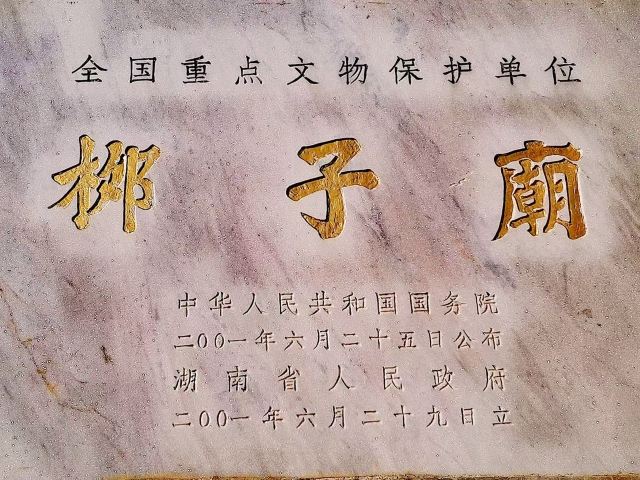 全国重点文物保护单位
柳子廟
中华人民共和国国务院
二00一年六月二十五日公布
湖南省人民政府
二00一年六月二十九日立